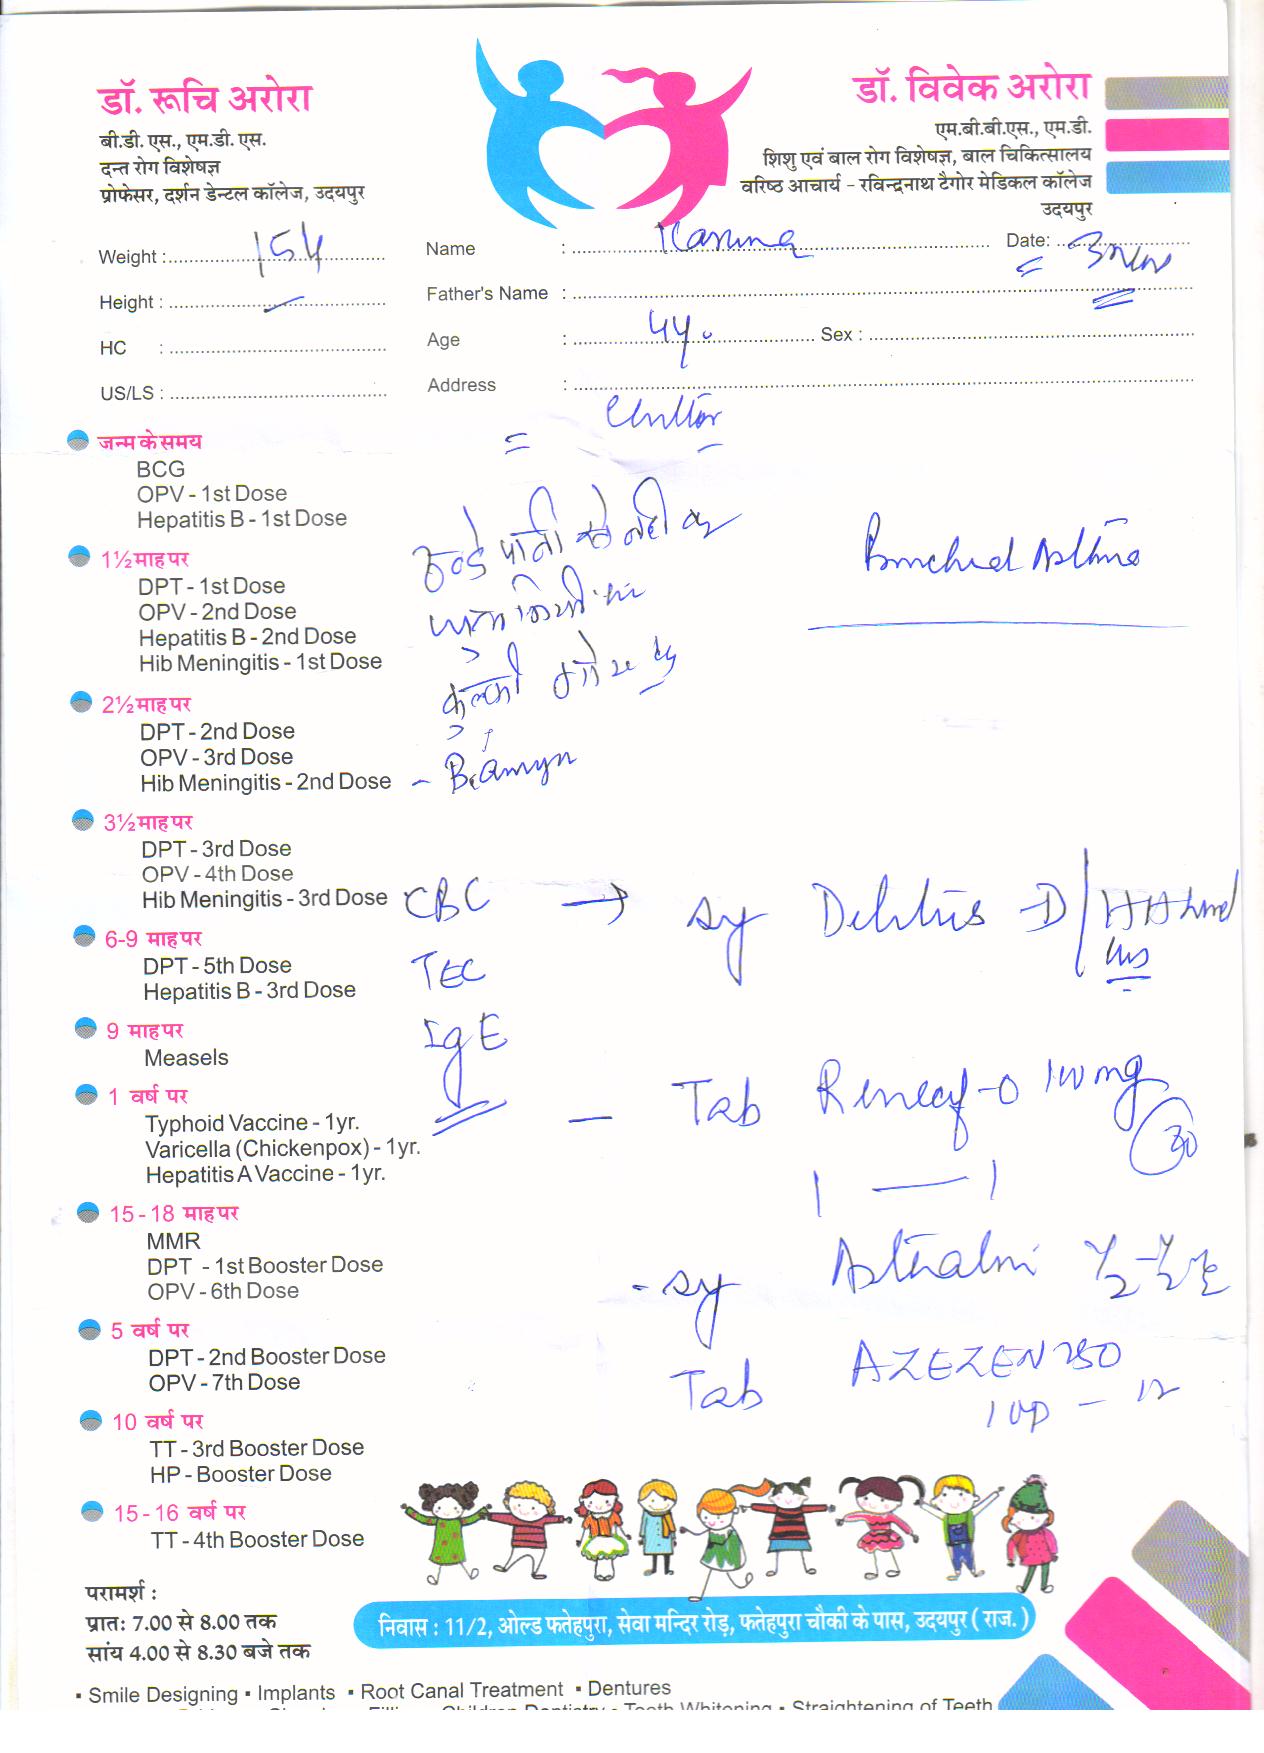 डॉ. रूचि अरोरा
बी.डी. एस., एम.डी. एस.
दन्त रोग विशेषज्ञ
प्रोफेसर, दर्शन डेन्टल कॉलेज, उदयपुर
डॉ. विवेक अरोरा
एम.बी.बी.एस., एम.डी.
शिशु एवं बाल रोग विशेषज्ञ, बाल चिकित्सालय
वरिष्ठ आचार्य - रविन्द्रनाथ टैगोर मेडिकल कॉलेज
उदयपुर
Weight : Name : Date:
Height : Father's Name :
HC : Age : 4y. Sex :
US/LS : Address :
जन्म के समय
BCG
OPV - 1st Dose
Hepatitis B - 1st Dose
1½ माह पर
DPT - 1st Dose
OPV - 2nd Dose
Hepatitis B - 2nd Dose
Hib Meningitis - 1st Dose
2½ माह पर
DPT - 2nd Dose
OPV - 3rd Dose
Hib Meningitis - 2nd Dose
3½ माह पर
DPT - 3rd Dose
OPV - 4th Dose
Hib Meningitis - 3rd Dose
6-9 माह पर
DPT - 5th Dose
Hepatitis B - 3rd Dose
9 माह पर
Measels
1 वर्ष पर
Typhoid Vaccine - 1yr.
Varicella (Chickenpox) - 1yr.
Hepatitis A Vaccine - 1yr.
15 - 18 माह पर
MMR
DPT - 1st Booster Dose
OPV - 6th Dose
5 वर्ष पर
DPT - 2nd Booster Dose
OPV - 7th Dose
10 वर्ष पर
TT - 3rd Booster Dose
HP - Booster Dose
15 - 16 वर्ष पर
TT - 4th Booster Dose
ठण्डे पानी से नही
Bronchial Asthma
CBC → Sy
TEC
IgE
- Tab 100 mg 30
1 — 1
- Sy Asthalin ½ - ½
Tab AZEZEN 250
परामर्श :
प्रातः 7.00 से 8.00 तक
सांय 4.00 से 8.30 बजे तक
निवास : 11/2, ओल्ड फतेहपुरा, सेवा मन्दिर रोड़, फतेहपुरा चौकी के पास, उदयपुर ( राज. )
▪ Smile Designing ▪ Implants ▪ Root Canal Treatment ▪ Dentures
Children Dentistry ▪ Tooth Whitening ▪ Straightening of Teeth